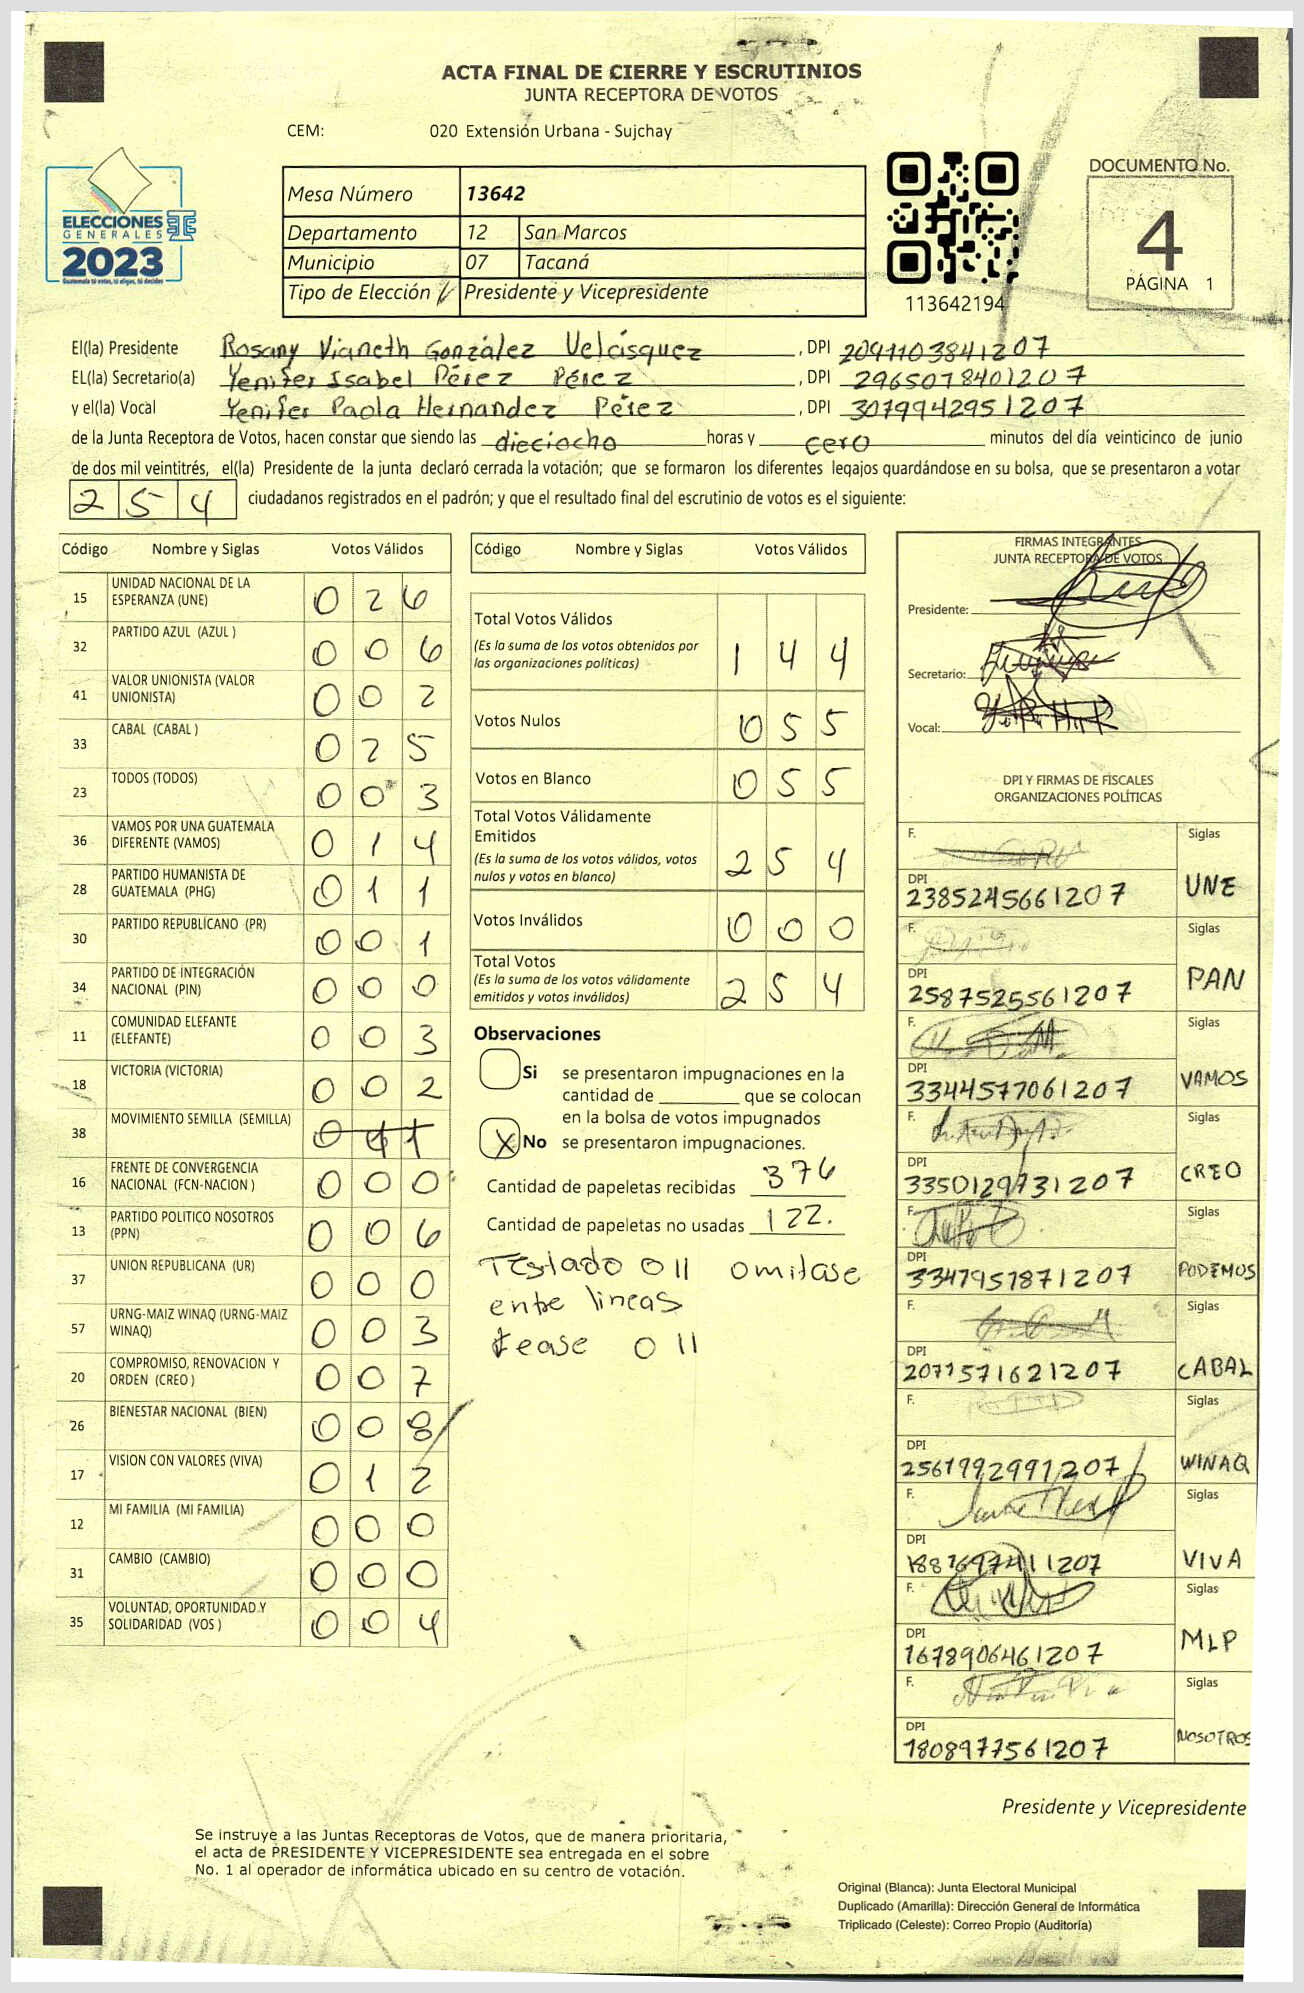 ACTA FINAL DE CIERRE Y ESCRUTINIOS
JUNTA RECEPTORA DE VOTOS
CEM: 020 Extensión Urbana - Sujchay
ELECCIONES
GENERALES
2023
Guatemala tú votas, tú eliges, tú decides
Mesa Número 13642
Departamento 12 San Marcos
Municipio 07 Tacaná
Tipo de Elección Presidente y Vicepresidente
113642194
DOCUMENTO No.
4
PÁGINA 1
El(la) Presidente Rosany Vianeth González Velásquez, DPI 2091103841207
EL(la) Secretario(a) Yenifer Isabel Pérez Pérez, DPI 2965078401207
y el(la) Vocal Yenifer Paola Hernandez Pérez, DPI 3079942951207
de la Junta Receptora de Votos, hacen constar que siendo las dieciocho horas y cero minutos del día veinticinco de junio
de dos mil veintitrés, el(la) Presidente de la junta declaró cerrada la votación; que se formaron los diferentes legajos guardándose en su bolsa, que se presentaron a votar
254 ciudadanos registrados en el padrón; y que el resultado final del escrutinio de votos es el siguiente:
Código Nombre y Siglas Votos Válidos
15 UNIDAD NACIONAL DE LA ESPERANZA (UNE) 026
32 PARTIDO AZUL (AZUL ) 006
41 VALOR UNIONISTA (VALOR UNIONISTA) 002
33 CABAL (CABAL ) 025
23 TODOS (TODOS) 003
36 VAMOS POR UNA GUATEMALA DIFERENTE (VAMOS) 014
28 PARTIDO HUMANISTA DE GUATEMALA (PHG) 011
30 PARTIDO REPUBLICANO (PR) 001
34 PARTIDO DE INTEGRACIÓN NACIONAL (PIN) 000
11 COMUNIDAD ELEFANTE (ELEFANTE) 003
18 VICTORIA (VICTORIA) 002
38 MOVIMIENTO SEMILLA (SEMILLA) 011
16 FRENTE DE CONVERGENCIA NACIONAL (FCN-NACION ) 000
13 PARTIDO POLITICO NOSOTROS (PPN) 006
37 UNION REPUBLICANA (UR) 000
57 URNG-MAIZ WINAQ (URNG-MAIZ WINAQ) 003
20 COMPROMISO, RENOVACION Y ORDEN (CREO ) 007
26 BIENESTAR NACIONAL (BIEN) 008
17 VISION CON VALORES (VIVA) 012
12 MI FAMILIA (MI FAMILIA) 000
31 CAMBIO (CAMBIO) 000
35 VOLUNTAD, OPORTUNIDAD Y SOLIDARIDAD (VOS ) 004
Código Nombre y Siglas Votos Válidos
Total Votos Válidos 144
(Es la suma de los votos obtenidos por
las organizaciones políticas)
Votos Nulos 055
Votos en Blanco 055
Total Votos Válidamente
Emitidos 254
(Es la suma de los votos válidos, votos
nulos y votos en blanco)
Votos Inválidos 000
Total Votos 254
(Es la suma de los votos válidamente
emitidos y votos inválidos)
Observaciones
Si se presentaron impugnaciones en la
cantidad de ________ que se colocan
en la bolsa de votos impugnados
X No se presentaron impugnaciones.
Cantidad de papeletas recibidas 376
Cantidad de papeletas no usadas 122.
Testado 011 omitase
entre lineas
Lease 011
FIRMAS INTEGRANTES
JUNTA RECEPTORA DE VOTOS
Presidente:
Secretario:
Vocal:
DPI Y FIRMAS DE FISCALES
ORGANIZACIONES POLÍTICAS
F. Siglas
DPI 2385245661207 UNE
F. Siglas
DPI 2587525561207 PAN
F. Siglas
DPI 3344577061207 VAMOS
F. Siglas
DPI 3350129731207 CREO
F. Siglas
DPI 3347957871207 PODEMOS
F. Siglas
DPI 2077571621207 CABAL
F. Siglas
DPI 2561992991207 WINAQ
F. Siglas
DPI 1881697411207 VIVA
F. Siglas
DPI 1678906461207 MLP
F. Siglas
DPI 1808977561207 NOSOTROS
Presidente y Vicepresidente
Se instruye a las Juntas Receptoras de Votos, que de manera prioritaria,
el acta de PRESIDENTE Y VICEPRESIDENTE sea entregada en el sobre
No. 1 al operador de informática ubicado en su centro de votación.
Original (Blanca): Junta Electoral Municipal
Duplicado (Amarilla): Dirección General de Informática
Triplicado (Celeste): Correo Propio (Auditoría)